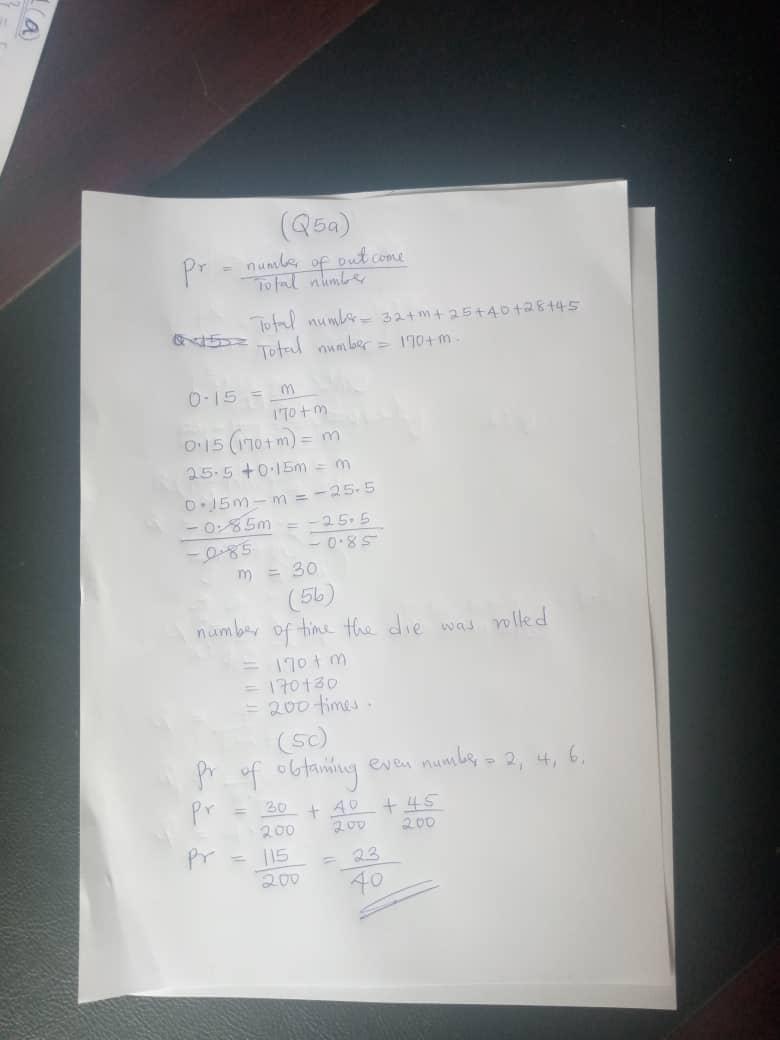 (a)
(Q5a)
Pr = number of out come / Total number
Total number = 32+m+25+40+28+45
Total number = 170+m.
0.15 = m / 170+m
0.15(170+m) = m
25.5 + 0.15m = m
0.15m - m = -25.5
-0.85m / -0.85 = -25.5 / -0.85
m = 30
(5b)
number of time the die was rolled
= 170+m
= 170+30
= 200 times.
(5C)
Pr of obtaining even number = 2, 4, 6.
Pr = 30/200 + 40/200 + 45/200
Pr = 115/200 = 23/40